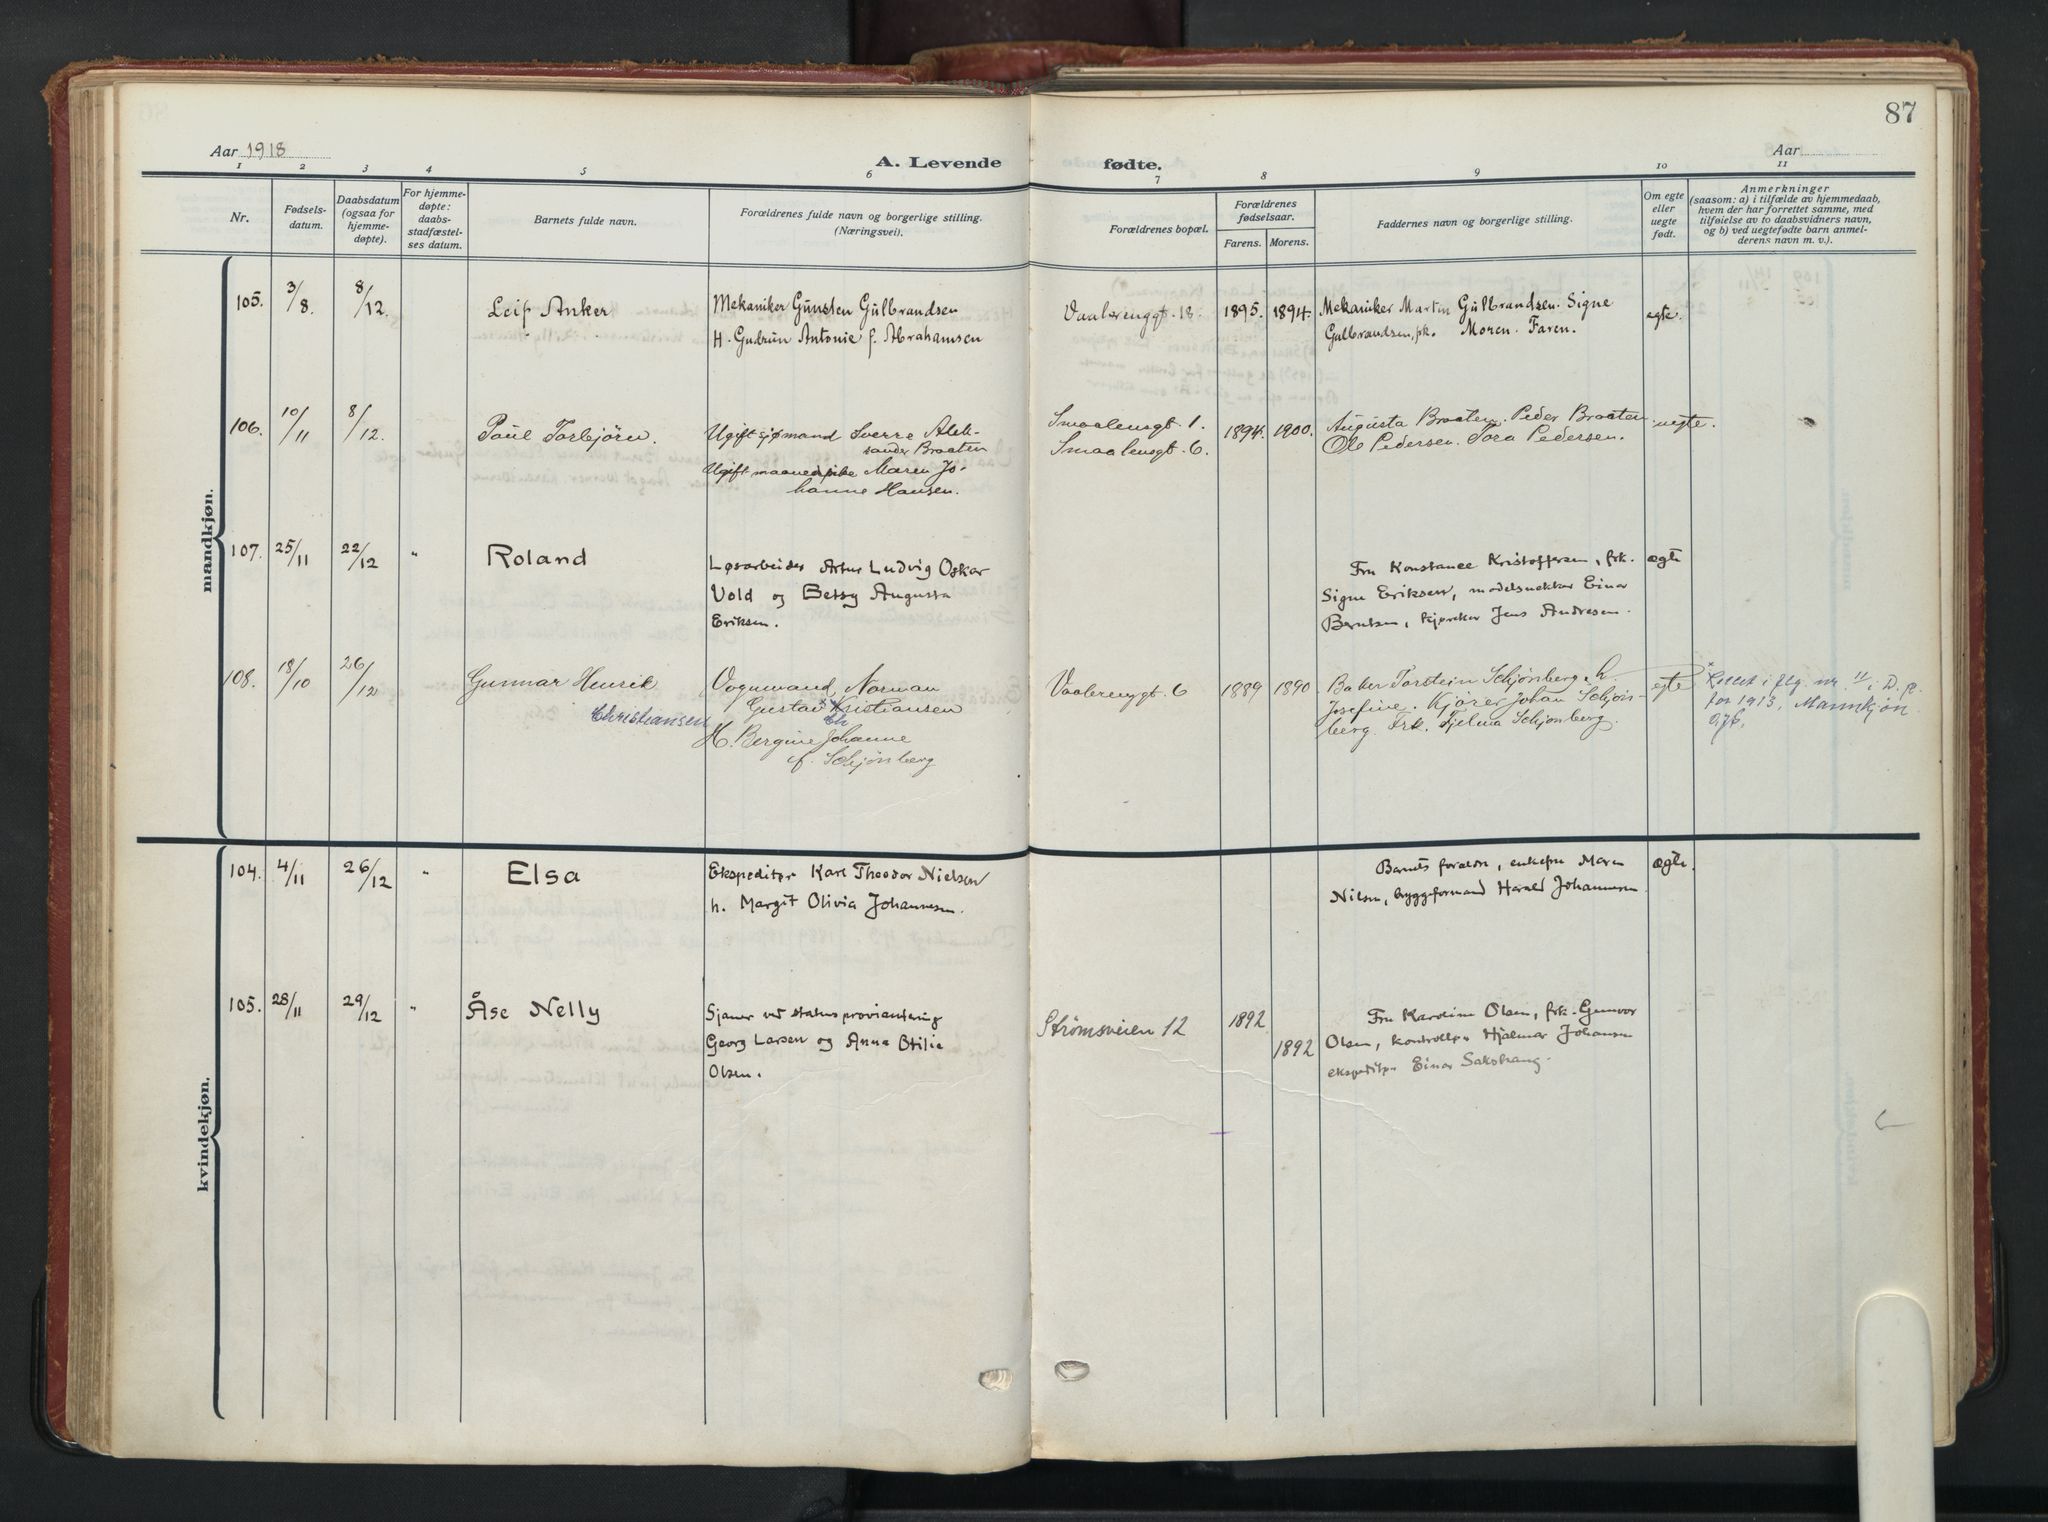 87
Aar 1918
A. Levende fødte.
Aar
1 2 3 4 5 6 7 8 9 10 11
Nr.
Fødsels-
datum.
Daabsdatum
(ogsaa for
hjemme-
døpte).
For hjemme-
døpte:
daabs-
stadfæstel-
ses datum.
Barnets fulde navn.
Forældrenes fulde navn og borgerlige stilling.
(Næringsvei).
Forældrenes bopæl.
Forældrenes
fødselsaar.
Farens. Morens.
Faddernes navn og borgerlige stilling.
Om egte
eller
uegte
født.
Anmerkninger
(saasom: a) i tilfælde av hjemmedaab,
hvem der har forrettet samme, med
tilføielse av to daabsvidners navn,
og b) ved uegtefødte barn anmel-
derens navn m. v.).
mandkjøn.
105. 3/8. 8/12. Leif Anker
Mekaniker Gunsten Gulbrandsen
H. Gudrun Antonie f. Abrahamsen
Vaalerenggt. 18. 1895. 1894.
Mekaniker Martin Gulbrandsen. Signe
Gulbrandsen, pk. Moren. Faren.
egte.
106. 10/11 8/12. Paul Torbjörn.
Ugift sjømand Sverre Alek-
sander Braaten
Ugift maanedspike Maren Jo-
hanne Hansen.
Smaalensgt. 1.
Smaalensgt. 6.
1894. 1900.
Augusta Braaten. Peder Braaten.
Ole Pedersen. Tora Pedersen.
uegte.
107. 25/11 22/12 " Roland
Løsarbeider Artur Ludvig Oskar
Vold og Betsy Augusta
Eriksen.
Fru Konstance Kristoffersen, frk.
Signe Eriksen, modelsnekker Einar
Berntsen, kjøreker Jens Andresen.
ægte
108. 18/10 26/12 Gunnar Henrik
Christiansen
Vognmand Norman
Gustav Kristiansen
Ch
H. Bergine Johanne
f. Schjönberg
Vaalerenggt. 6 1889 1890.
Baker Torstein Schjönberg. h.
Josefine. Kjörer Johan Schjön-
berg. Frk. Tjelma Schjönberg.
egte
* Rettet i flg. nr. 11 i D. p.
for 1913, Mannkjøn
kvindekjøn.
104. 4/11 26/12 " Elsa
Ekspeditør Karl Theodor Nielsen
h. Margit Olivia Johannesen.
Barnets foraldre, enkefru Maren
Nilsen, byggeformand Harald Johannesen
ægte.
105. 28/11 29/12 " Åse Nelly
Sjauer ved statens proviantering
Georg Larsen og Anna Otilie
Olsen.
Strömsveien 12 1892 1892
Fru Karoline Olsen, frk. Gunvor
Olsen, kontrollør Hjalmar Johansen
ekspeditør Einar Sakshaug.